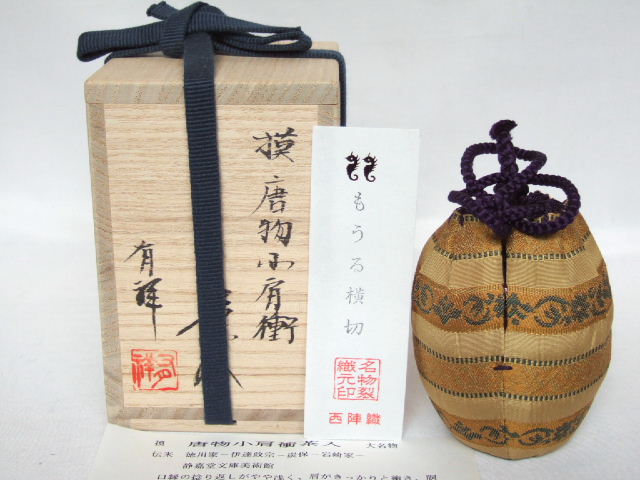 摸唐物小肩衝
有祥
もうる横切
名物裂
織元印
西陣織
摸 唐物小肩衝茶入 大名物
伝来 徳川家－伊達政宗－ －岩崎家－
静嘉堂文庫美術館
口縁の捻り返しがやや浅く、肩がきっかりと衝き、胴